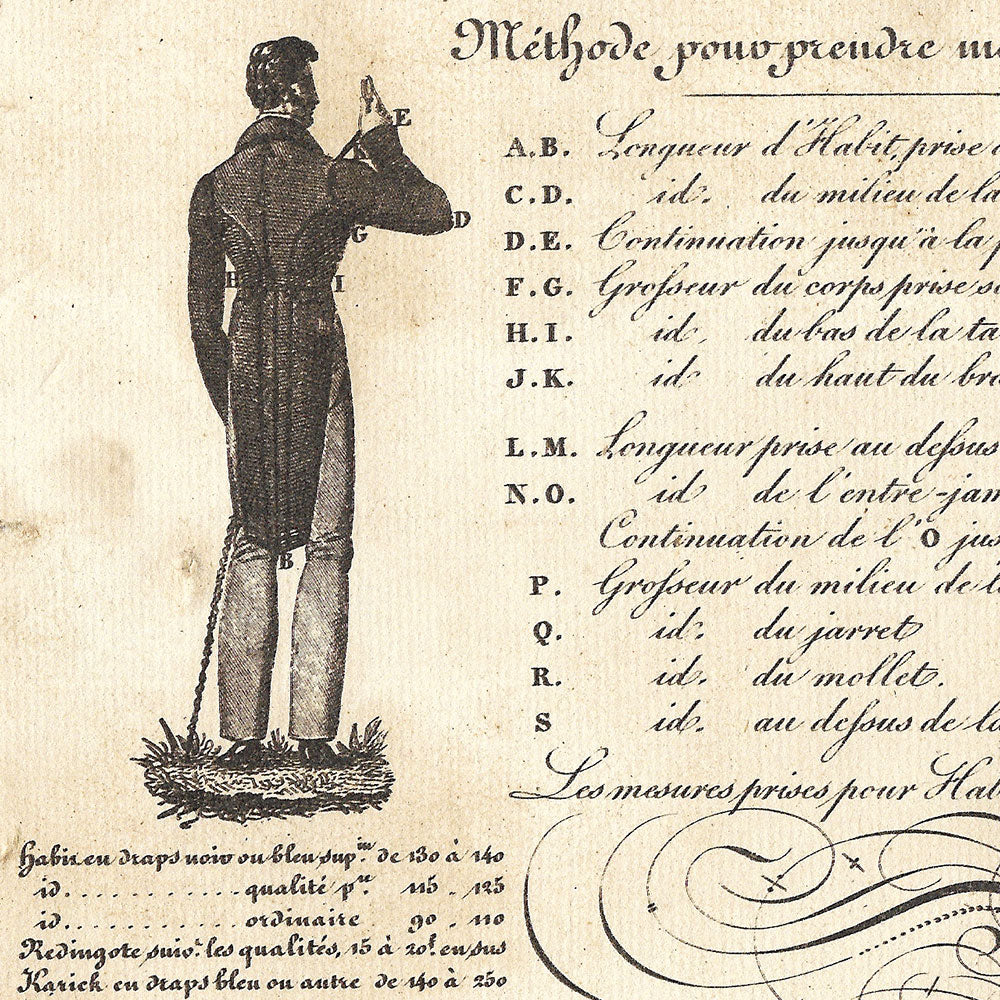 Méthode pour prendre
A.B. Longueur d'Habit, prise
C.D. id. du milieu de la
D.E. Continuation jusqu'à la
F.G. Grosseur du corps prise
H.I. id. du bas de la
J.K. id du haut du
L.M. Longueur prise au dessus
N.O. id de l'entre-jam
Continuation de l'O jus
P. Grosseur du milieu de
Q. id. du jarret
R. id. du mollet.
S id. au dessus de la
Les mesures prises pour Hab
E
D
G
H
I
B
habit en draps noir ou bleu sup.in de 130 à 140
id. . . . . . . . . . . . qualité p.re 115 . 125
id. . . . . . . . . . . . ordinaire 90 . 110
Redingote suiv.t les qualités, 15 à 20f en sus
Karick en draps bleu ou autre de 140 à 250